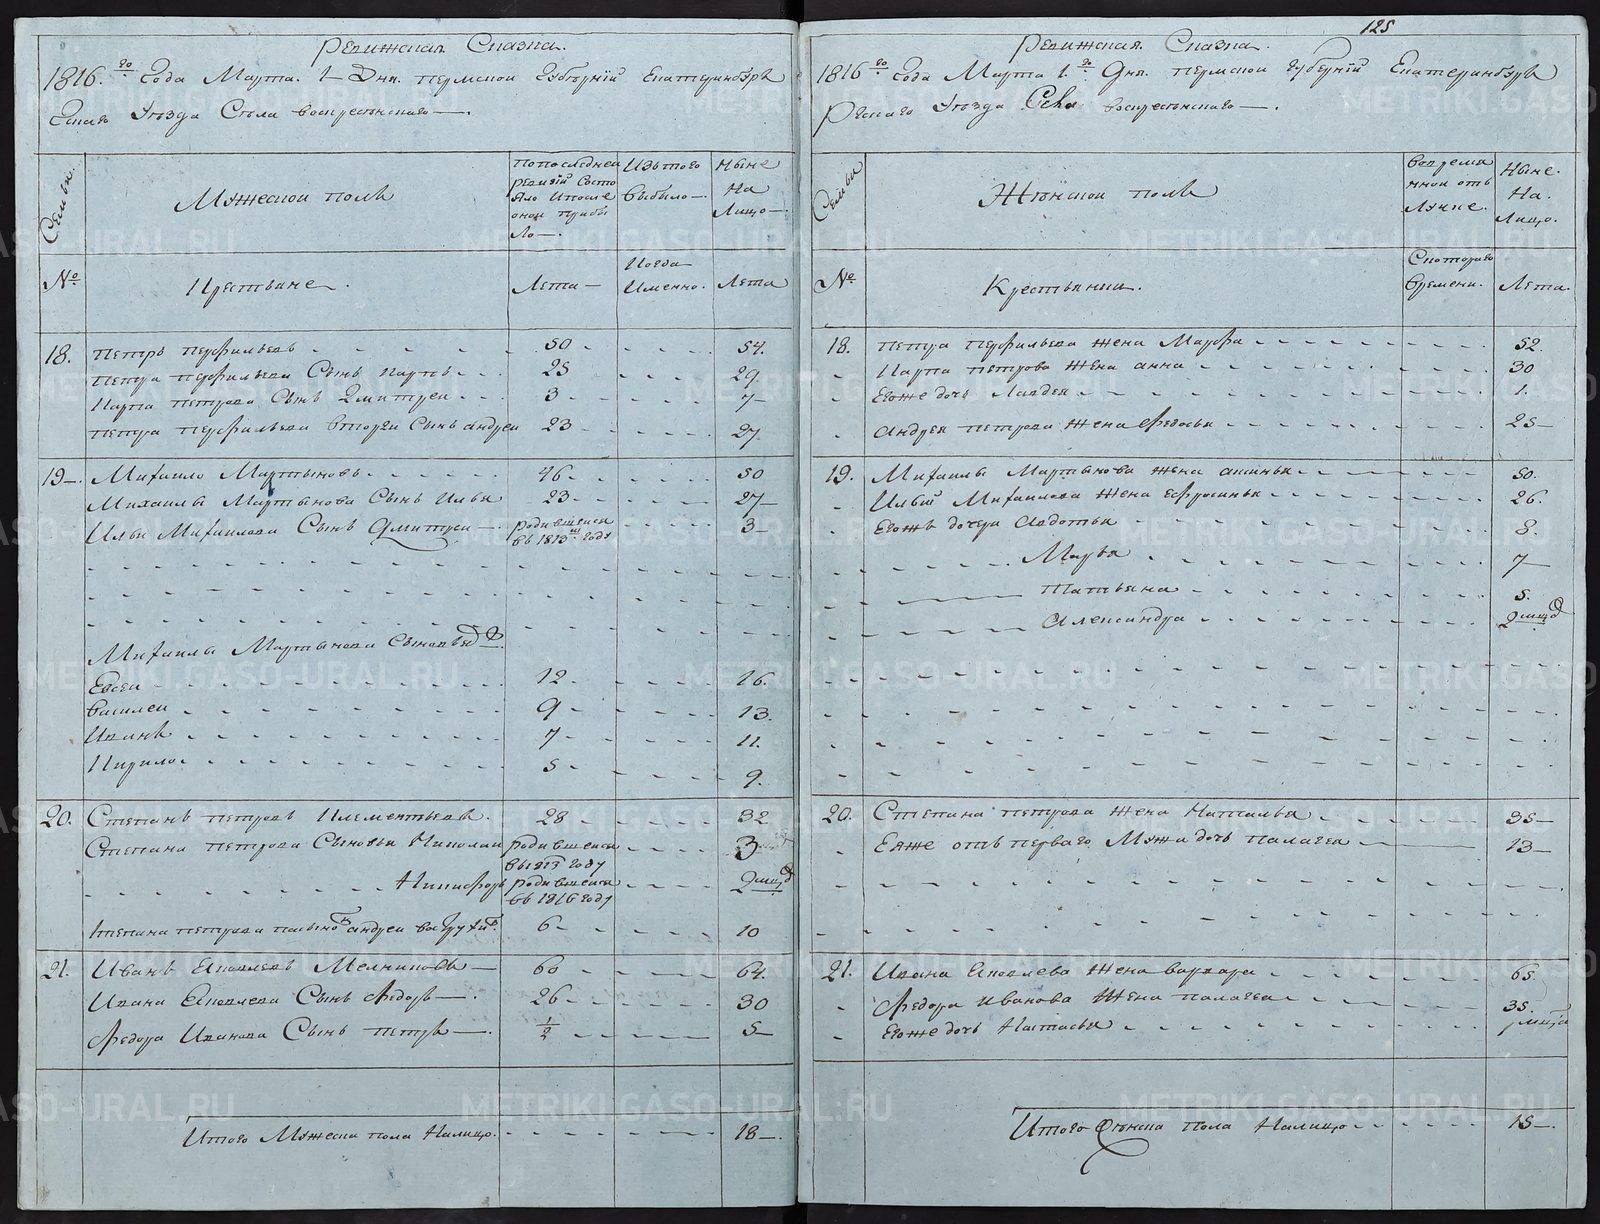 Ревижская Сказка.
1816го Года Марта 1 Дня Пермской Губернии Екатеринбур
скаго Уезда Села Воскресенскаго
Семьи.
Мужескои полъ
По последней ревизии состояло и после оной прибыло
Изъ того выбыло
Ныне на лицо
№
Крестьяне.
Лета
Когда именно.
Лета
18. Петръ Перфильевъ 50 54.
Петра Перфильева Сынъ Карпъ 25 29
Карпа Петрова Сынъ Дмитреи 3 7
Петра Перфильева вторы Сынъ андреи 23 27
19. Михаило Мартыновъ 46 50
Михаилы Мартынова Сынъ Илья 23 27
Ильи Михаилова Сынъ Дмитреи родившеися въ 1813м году 3
Михаилы Мартынова Сыновья
Евсеи 12 16
Василеи 9 13.
Иванъ 7 11.
Кирило 5 9.
20. Степанъ Петровъ Клементьевъ. 28 32
Степана Петрова Сыновья Николаи родившеися въ 1813 году 3
Никифоръ родившеися въ 1816 году
Степана Петрова андреи 6 10
21. Иванъ Яковлевъ Мелниковъ 60 64.
Ивана Яковлева Сынъ Федоръ 26 30
Федора Иванова Сынъ Петръ 1/2 5
Итого Мужеска пола Налицо. 18
125
Ревижская Сказка.
1816го Года Марта 1го Дня Пермской Губернии Екатеринбур
рскаго Уезда Села Воскресенскаго
Семьи
Женскои полъ
Во временной отлучке.
Ныне на лицо.
№
Крестьянки.
С котораго времени.
Лета.
18. Петра Перфильева жена Марфа 52
Карпа Петрова жена анна 30
Егоже дочь 1.
Андрея Петрова жена Федосья 25
19. Михаилы Мартынова жена аксинья 50.
Ильи Михаилова жена Ефросинья 26.
Егожъ дочери Авдотья 8.
Марья 7
Татьяна 5.
Александра
20. Степана Петрова жена Наталья 35
Еяже отъ перваго Мужа дочь палагея 13
21. Ивана Яковлева жена варвара 65.
Федора Иванова жена палагея 35.
Егоже дочь Настасья
Итого Женска пола Налицо 15
METRIKI.GASO-URAL.RU